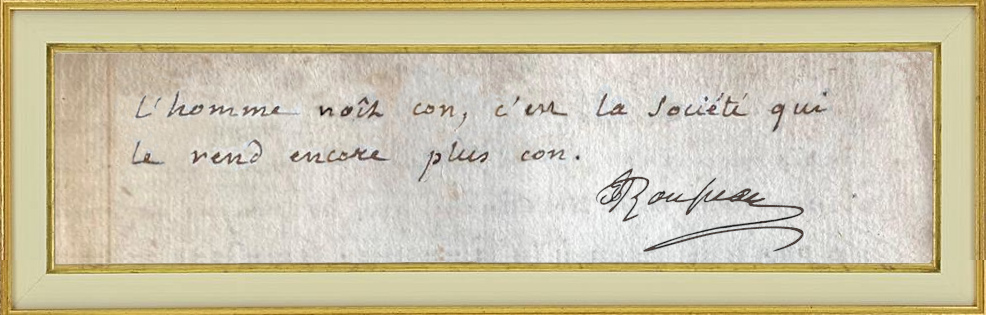 L'homme naît con, c'est la Société qui
le rend encore plus con.
JJRousseau